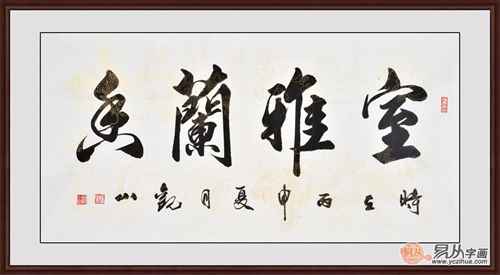 室雅蘭香
時在丙申夏月觀山
易从字画
www.yczihua.com